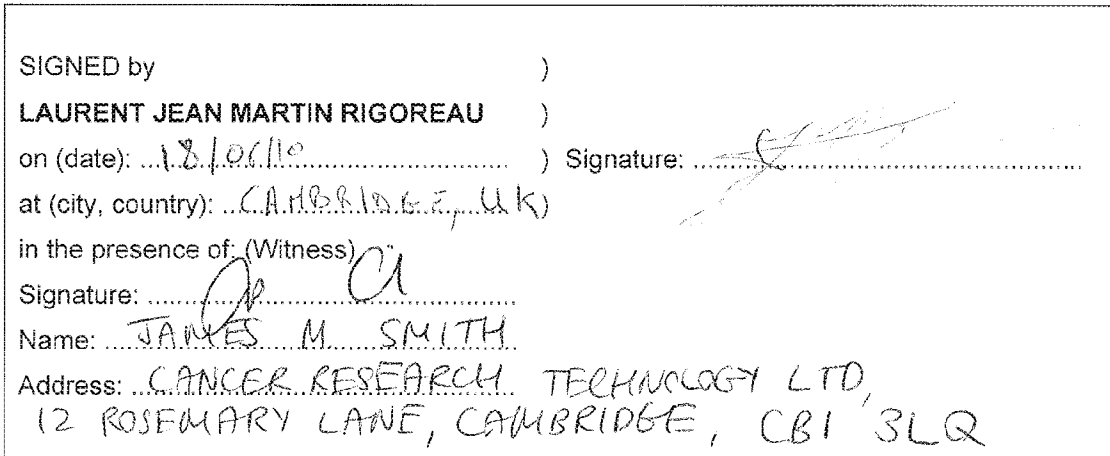 SIGNED by )
LAURENT JEAN MARTIN RIGOREAU )
on (date): 18/06/10 ) Signature:
at (city, country): CAMBRIDGE, UK)
in the presence of: (Witness)
Signature:
Name: JAMES M SMITH
Address: CANCER RESEARCH TECHNOLOGY LTD,
12 ROSEMARY LANE, CAMBRIDGE, CB1 3LQ